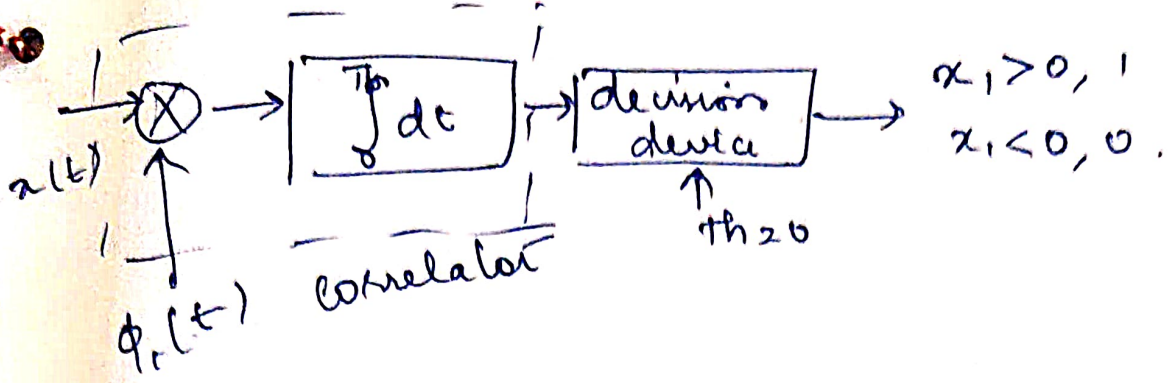 x(t)
φ₁(t)
X
∫₀ᵀᵇ dt
correlator
decision
device
Th=0
x₁>0, 1
x₁<0, 0.